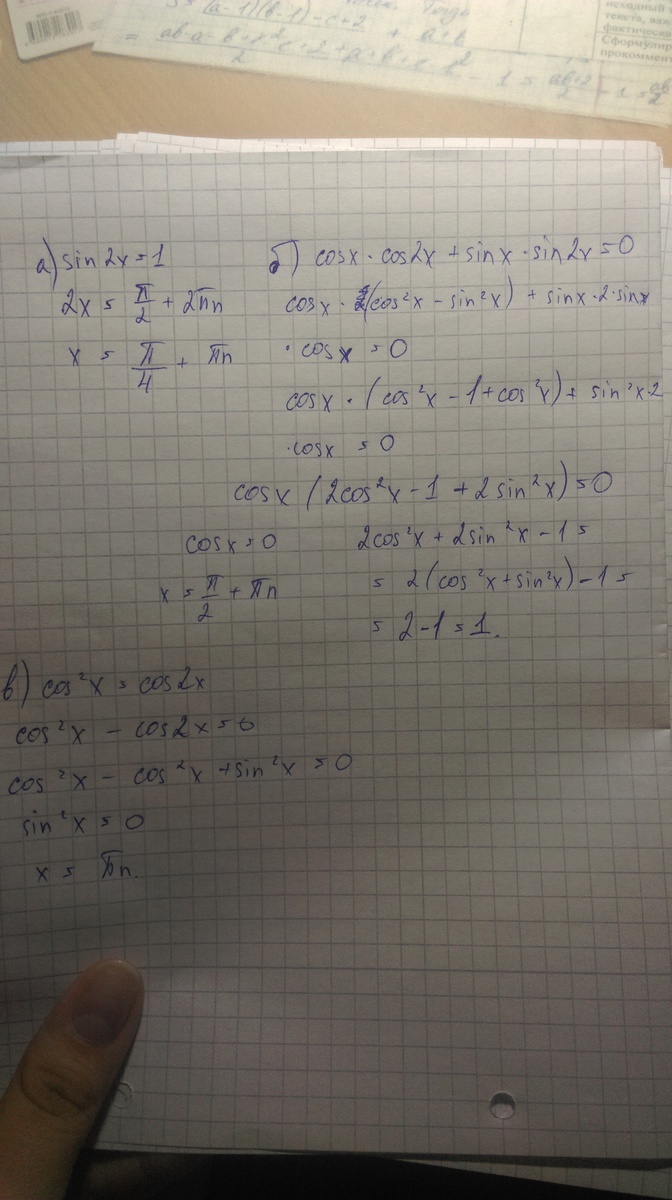 = (a-1)(b-1)-c+2
2
- 1 = (ab+2)/2 - 1 = ab/2
исходный
текста, вы
фактическ
Сформулир
прокоммент
а) sin 2x = 1
2x = π/2 + 2πn
x = π/4 + πn
б) cosx · cos2x + sinx · sin2x = 0
cosx · (cos²x - sin²x) + sinx · 2 · sinx
· cosx = 0
cosx · (cos²x - 1 + cos²x) + sin²x · 2
· cosx = 0
cosx (2cos²x - 1 + 2sin²x) = 0
cosx = 0
x = π/2 + πn
2cos²x + 2sin²x - 1 =
= 2(cos²x + sin²x) - 1 =
= 2 - 1 = 1.
в) cos²x = cos2x
cos²x - cos2x = 0
cos²x - cos²x + sin²x = 0
sin²x = 0
x = πn.